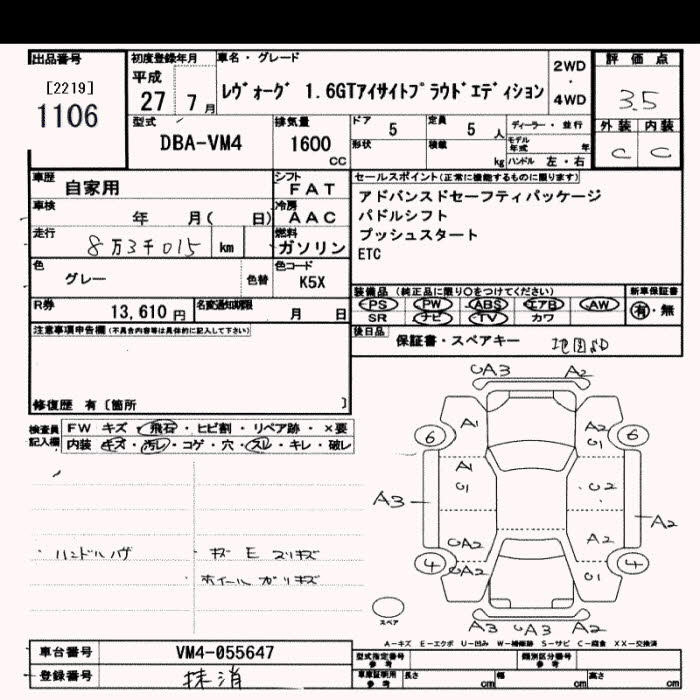 出品番号 初度登録年月 車名・グレード 2WD 評価点
[2219] 平成 レヴォーグ 1.6GTアイサイトプラウドエディション ・ 3.5
1106 27 7月 4WD
型式 排気量 ドア 5 定員 5人 ディーラー・並行 外装 内装
DBA-VM4 1600CC 形状 積載 kg モデル年式 年 C C
ハンドル 左・右
車歴 自家用 シフト FAT セールスポイント(正常に機能するものに限ります)
車検 年 月( 日) 冷房 AAC アドバンスドセーフティパッケージ
パドルシフト
走行 8万3千015 km 燃料 ガソリン プッシュスタート
ETC
色 グレー 色替 色コード K5X
装備品(純正品に限り○をつけてください) 新車保証書
PS PW ABS エアB AW 有・無
R券 13,610円 名変通知期限 月 日 SR ナビ TV カワ
注意事項申告欄(不具合内容等は具体的に記入して下さい) 後日品 保証書・スペアキー 地図SD
修復歴 有〔箇所 〕
検査員記入欄 FW キズ・飛石・ヒビ割・リペア跡・×要
内装 キズ・汚レ・コゲ・穴・スレ・キレ・破レ
UA3 A2
A1 A2
6 U1 6
A1
U1 U2
A3 A2
UA2 A2
4 UA2 U1 4
A3 UA3 A2
スペア
・キズ E スリキズ
・ホイールガリキズ
A-キズ E-エクボ U-凹み W-補修跡 S-サビ C-腐食 XX-交換済
車台番号 VM4-055647 型式指定番号 参考 類別区分番号 参考
登録番号 抹消 車庫証明用 参考 長さ cm 幅 cm 高さ cm